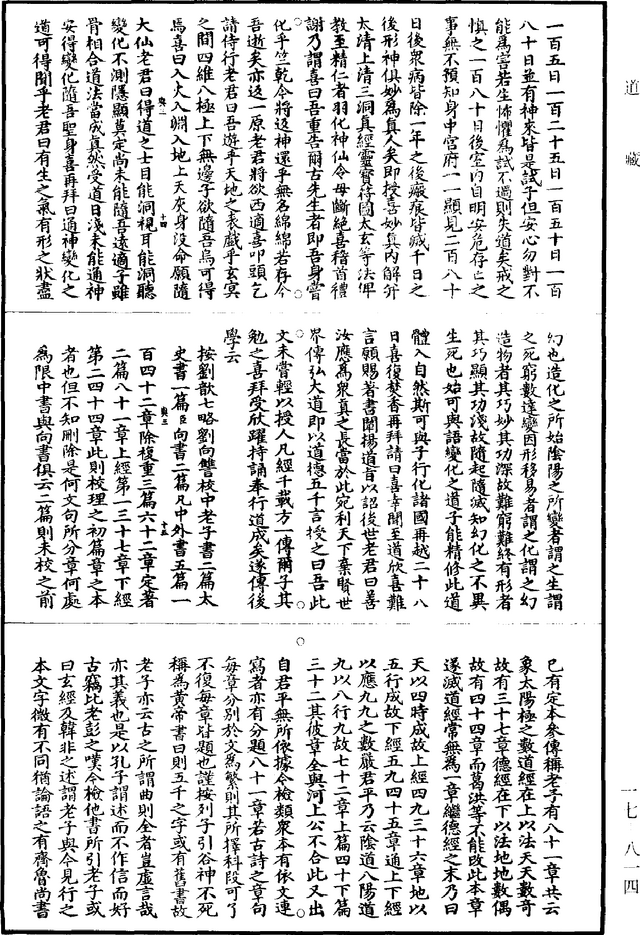 道藏
一百五日一百二十五日一百五十日一百
八十日並有神來皆是試子但安心勿對不
能為害若生怖懼為試不過則失道矣戒之
慎之一百八十日後室內自明安危存亡之
事無不預知身中宮府一一顯見二百八十
日後眾病皆除一年之後瘢痕皆滅千日之
後形神俱妙為真人矣即授喜妙真內解并
太清上清三洞真經靈寶符圖太玄等法俾
教至精仁者羽化神仙令毋斷絕喜稽首禮
謝乃謂喜曰吾重告爾古先生者即吾身嘗
化乎竺乾今將返神還乎無名綿綿若存今
吾逝矣亦返一原老君將欲西適喜叩頭乞
請侍行老君曰吾遊乎天地之表戲乎玄冥
之間四維八極上下無邊子欲隨吾烏可得
焉喜曰入火入淵入地上天灰身沒命願隨
大仙老君曰得道之士目能洞視耳能洞聽
變化不測隱顯莫定尚未能隨吾遠適子雖
骨相合道法當成真然受道日淺未能通神
安得變化隨吾聖身喜再拜曰適神變化之
道可得聞乎老君曰有生之氣有形之狀盡
幻也造化之所始陰陽之所變者謂之生謂
之死窮數達變因形移易者謂之化謂之幻
造物者其巧妙其功深故難窮難終有形者
其巧顯其功淺故隨起隨滅知幻化之不異
生死也始可與語變化之道子能精修此道
體入自然斯可與子行化諸國再越二十八
日喜復焚香再拜請曰喜幸聞至道欣喜難
言願賜著書闡揚道旨以詔後世老君曰善
汝應為眾真之長當於此宛利天下棄賢世
界傳弘大道即以道德五千言授之曰吾此
文未嘗輕以授人凡經千載方一傳爾子其
勉之喜拜受欣躍持誦奉行道成矣遂傳後
學云
按劉歆七略劉向讎校中老子書二篇太
史書一篇臣向書二篇凡中外書五篇一
百四十二章除複重三篇六十二章定著
二篇八十一章上經第一三十七章下經
第二四十四章此則校理之初篇章之本
者也但不知刪除是何文句所分章何處
為限中書與向書俱云二篇則未校之前
已有定本參傳稱老子有八十一章共云
象太陽極之數道經在上以法天天數奇
故有三十七章德經在下以法地地數偶
故有四十四章而葛洪等不能改此本章
遂滅道經常無為一章繼德經之末乃曰
天以四時成故上經四九三十六章地以
五行成故下經五九四十五章通上下經
以應九九之數嚴君平乃云陰道八陽道
九以八行九故七十二章上篇四十下篇
三十二其彼章全與河上公不合此又出
自君平無所依據今檢類眾本有依文連
寫者亦有分題八十一章若古詩之章句
每章分別於文為繁則其所擇科段可了
不復每章皆題也謹按列子引谷神不死
稱為黃帝書曰則五千之字或有舊書故
老子亦云古之所謂曲則全者豈虛言哉
亦其義也是以孔子謂述而不作信而好
古竊比老彭之嘆今檢他書所引老子或
曰玄經及韓非之述謂老子與今見行之
本文字微有不同猶論語之有齊魯尚書
一七 八一四